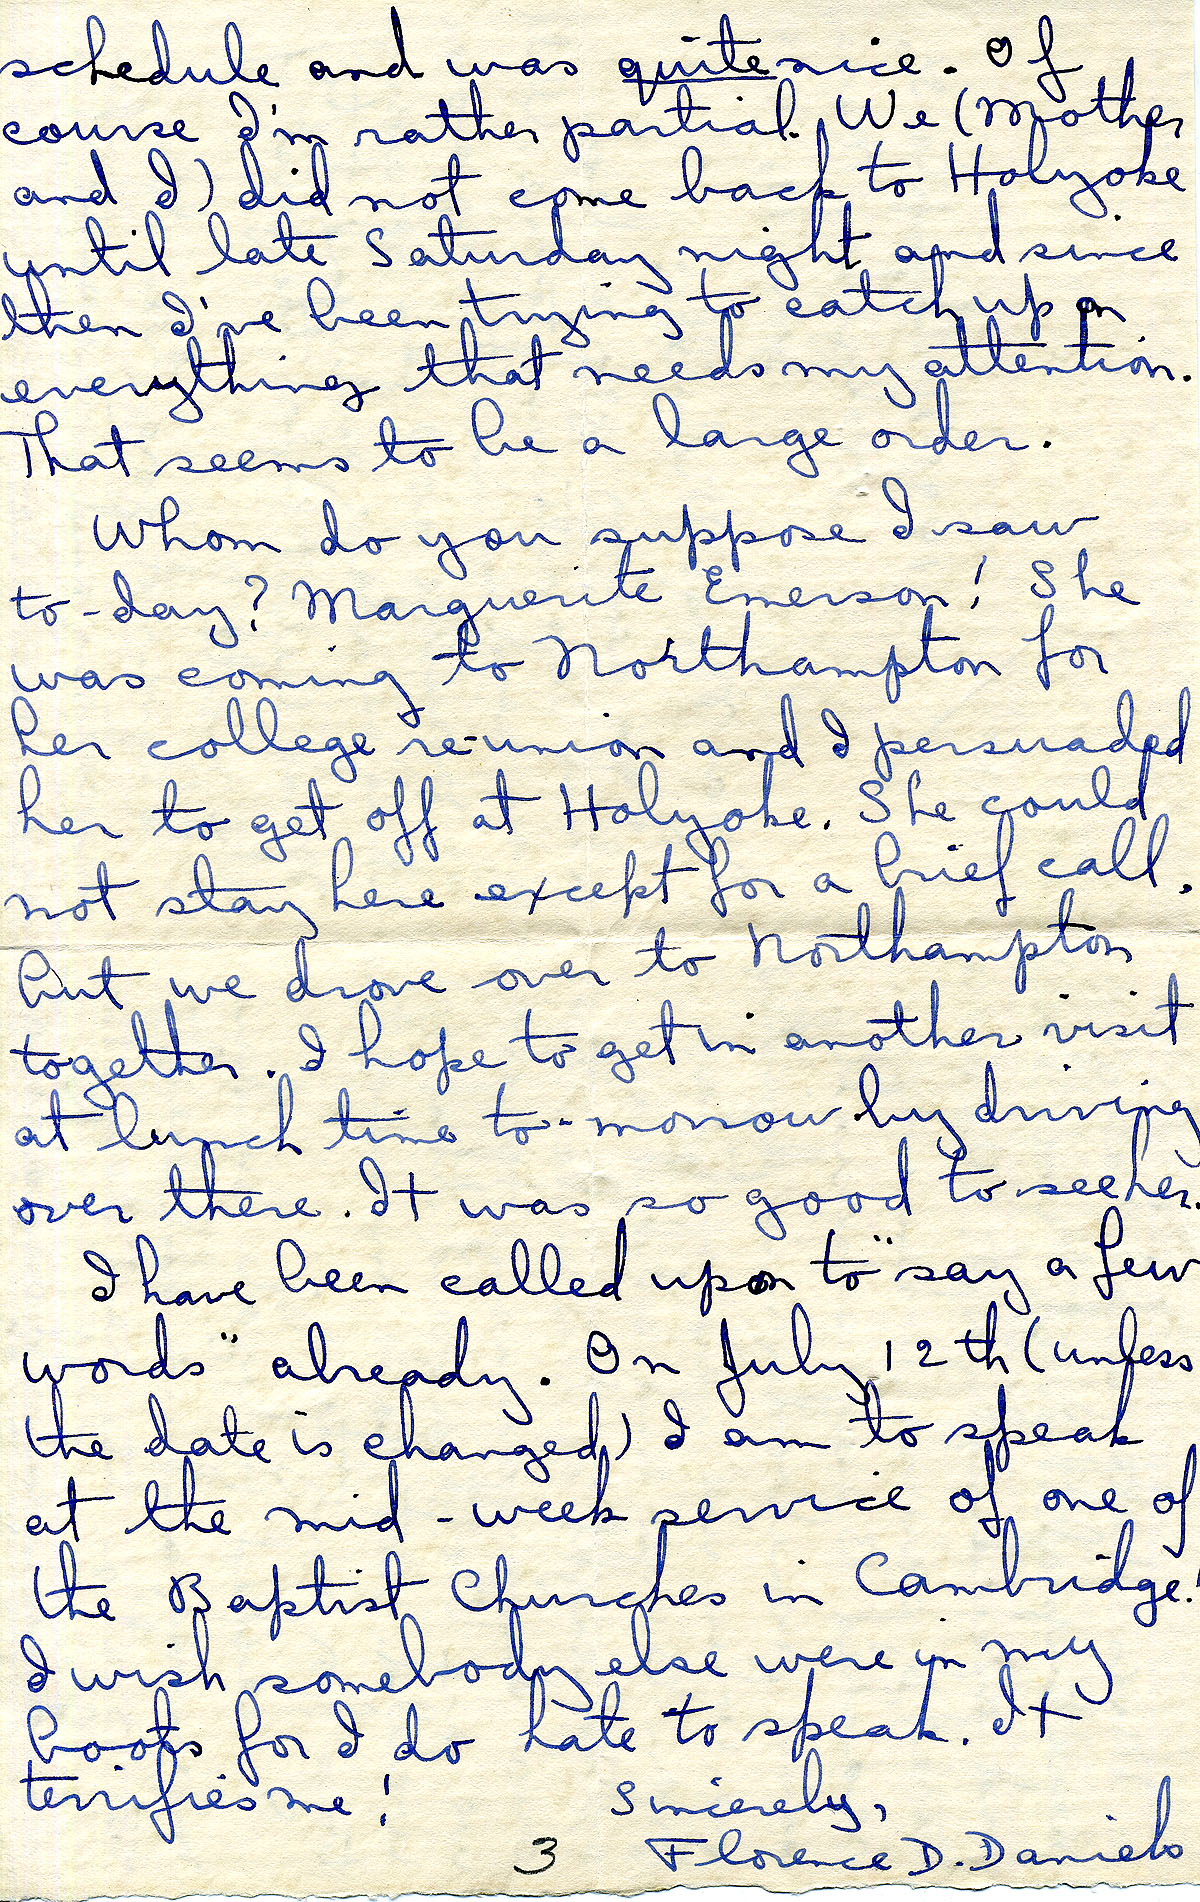 schedule and was quite nice. Of
course I'm rather partial. We (Mother
and I) did not come back to Holyoke
until late Saturday night and since
then I've been trying to catch up on
everything that needs my attention.
That seems to be a large order.
Whom do you suppose I saw
to-day? Marguerite Emerson! She
was coming to Northampton for
her college re-union and I persuaded
her to get off at Holyoke. She could
not stay here except for a brief call.
but we drove over to Northampton
together. I hope to get in another visit
at lunch time to-morrow by driving
over there. It was so good to see her.
I have been called upon to "say a few
words" already. On July 12th (unless
the date is changed) I am to speak
at the mid-week service of one of
the Baptist Churches in Cambridge!
I wish somebody else were in my
boots for I do hate to speak. It
terrifies me! Sincerely,
3 Florence D. Daniels